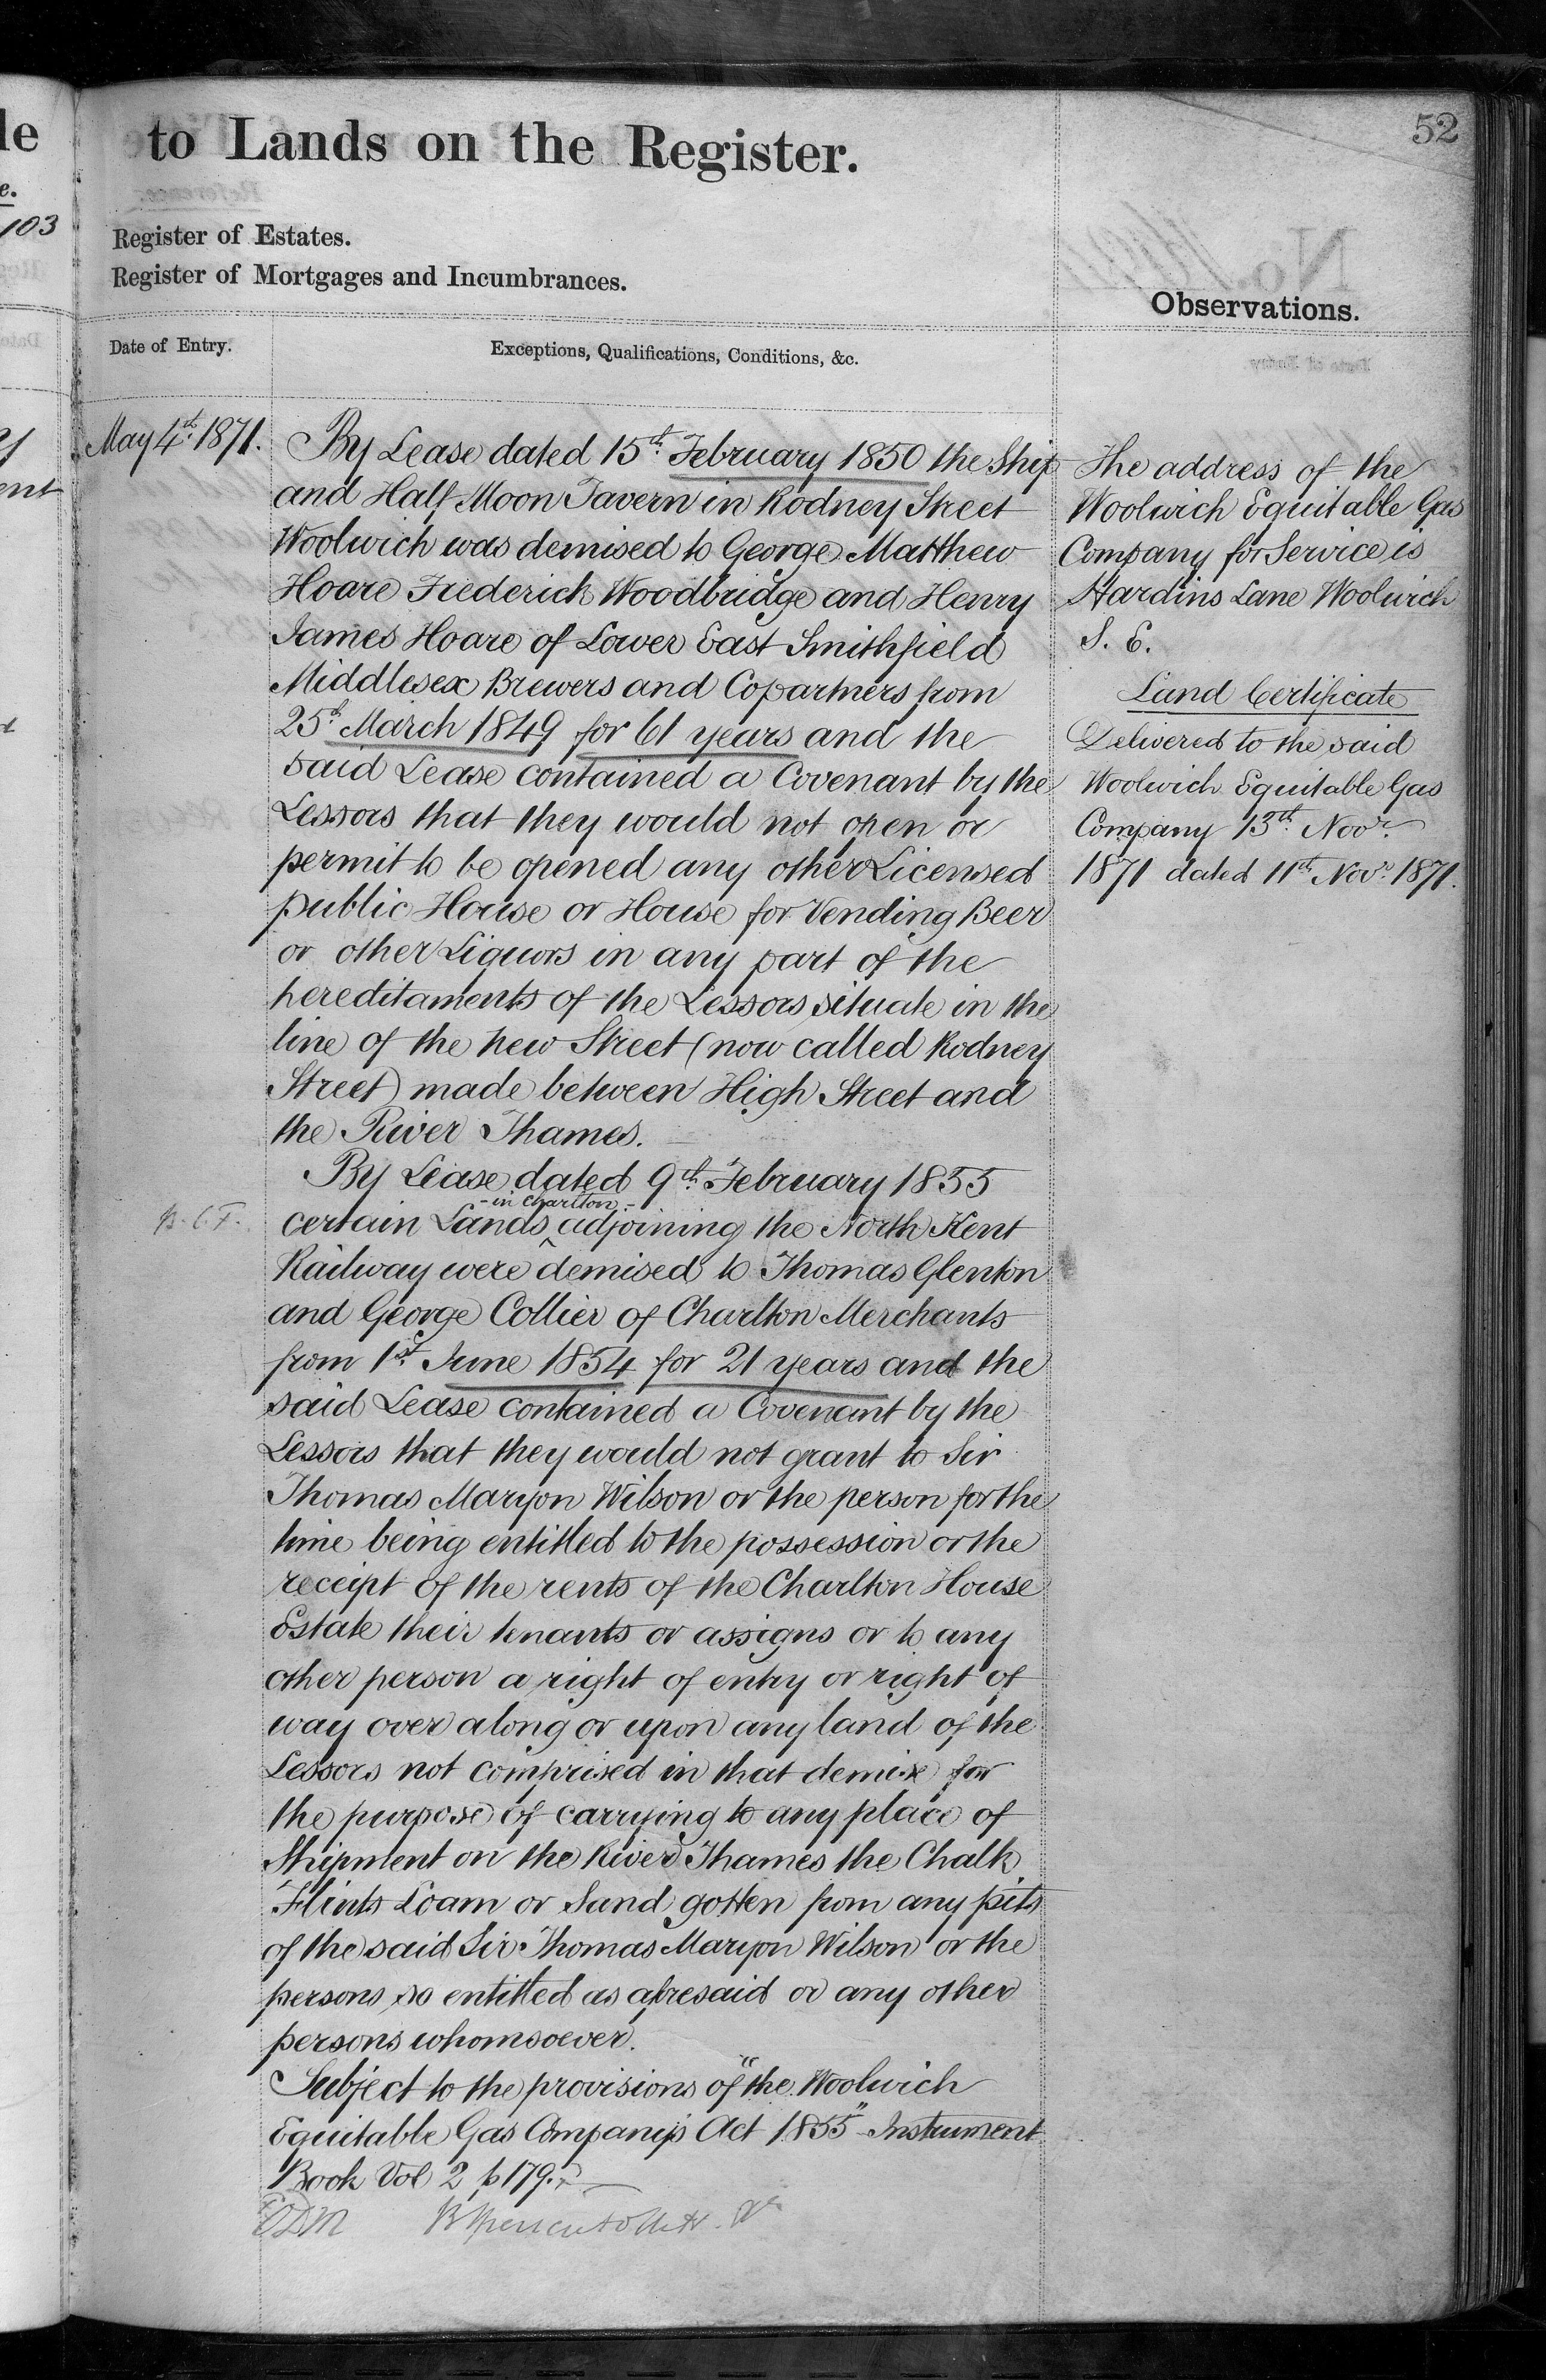 52
to Lands on the Register.
Register of Estates.
Register of Mortgages and Incumbrances.
Date of Entry.
Exceptions, Qualifications, Conditions, &c.
Observations.
May 4th 1871.
By Lease dated 15th February 1850 the Ship
and Half Moon Tavern in Rodney Street
Woolwich was demised to George Matthew
Hoare Frederick Woodbridge and Henry
James Hoare of Lower East Smithfield
Middlesex Brewers and Copartners from
25th March 1849 for 61 years and the
said Lease contained a Covenant by the
Lessors that they would not open or
permit to be opened any other Licensed
public House or House for Vending Beer
or other Liquors in any part of the
hereditaments of the Lessors situate in the
line of the new Street (now called Rodney
Street) made between High Street and
the River Thames.
By Lease dated 9th February 1855
- in Charlton -
certain Lands adjoining the North Kent
Railway were demised to Thomas Glenton
and George Collier of Charlton Merchants
from 1st June 1854 for 21 years and the
said Lease contained a Covenant by the
Lessors that they would not grant to Sir
Thomas Maryon Wilson or the person for the
time being entitled to the possession or the
receipt of the rents of the Charlton House
Estate their tenants or assigns or to any
other person a right of entry or right of
way over along or upon any land of the
Lessors not comprised in that demise for
the purpose of carrying to any place of
Shipment on the River Thames the Chalk
Flints Loam or Sand gotten from any pits
of the said Sir Thomas Maryon Wilson or the
persons so entitled as aforesaid or any other
persons whomsoever.
Subject to the provisions of "the Woolwich
Equitable Gas Company's Act 1855" Instrument
Book Vol 2 p 179.
The address of the
Woolwich Equitable Gas
Company for Service is
Hardins Lane Woolwich
S. E.
Land Certificate
Delivered to the said
Woolwich Equitable Gas
Company 13th Novr.
1871 dated 11th Novr. 1871.
le
e.
103
ent